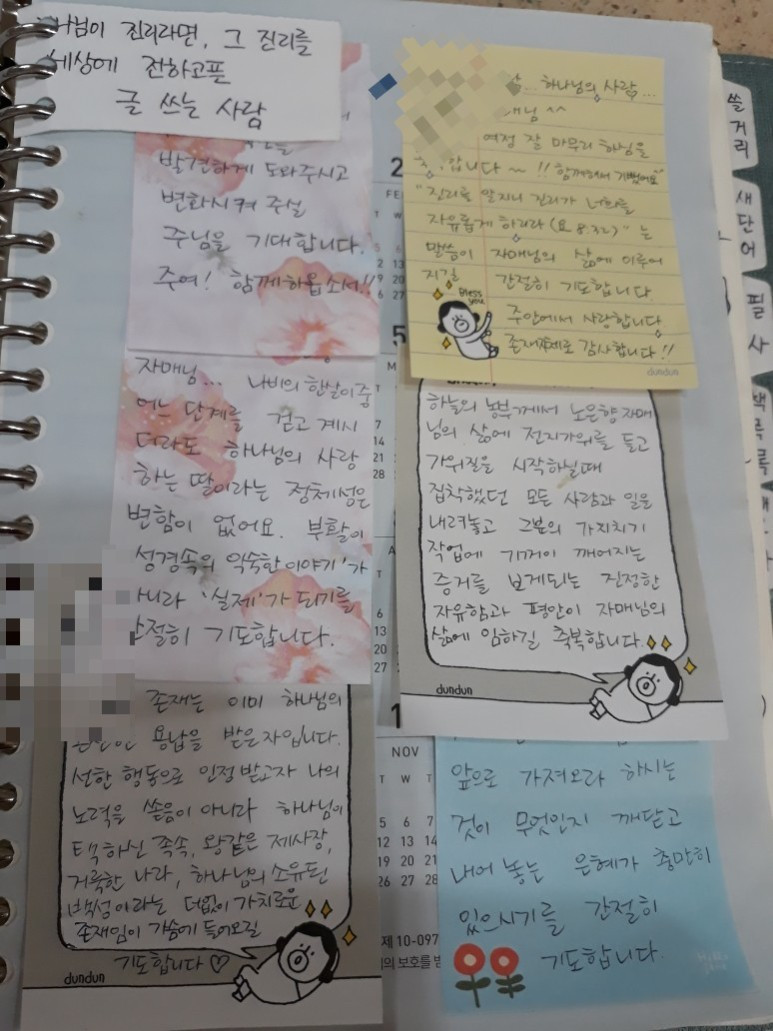 진리라면, 그 진리를
세상에 전하고픈
글 쓰는 사람
발견하게 도와주시고
변화시켜 주실
주님을 기대합니다.
주여! 함께하옵소서!!
자매님... 나비의 한살이 중
어느 단계를 걷고 계시
더라도 하나님의 사랑
하는 딸이라는 정체성은
변함이 없어요. 부활이
성경속의 익숙한 이야기'가
아니라 '실제'가 되기를
간절히 기도합니다.
존재는 이미 하나님의
용납을 받은 자입니다.
선한 행동으로 인정받고자 나의
노력을 쏟음이 아니라 하나님이
택하신 족속, 왕같은 제사장,
거룩한 나라, 하나님의 소유된
백성이라는 더없이 가치로운
존재임이 가슴에 들어오길
기도합니다 ♡
dundun
하나님의 사람...
매님 ^^
여정 잘 마무리 하심을
합니다 ~ !! 함께해서 기뻤어요
"진리를 알지니 진리가 너희를
자유롭게 하리라 (요 8:32)" 는
말씀이 자매님의 삶에 이루어
지길 간절히 기도합니다
Bless you
주안에서 사랑합니다
존재자체로 감사합니다!!
dundun
하늘의 농부께서 노은향 자매
님의 삶에 전지가위를 들고
가위질을 시작하실때
집착했던 모든 사람과 일을
내려놓고 그분의 가지치기
작업에 깨어지는
증거를 보게되는 진정한
자유함과 평안이 자매님의
삶에 임하길 축복합니다.
dundun
앞으로 가져오라 하시는
것이 무엇인지 깨닫고
내어 놓는 은혜가 충만히
있으시기를 간절히
기도합니다.
NOV
T W T
5 6 7
12 13 14
19 20 21
26 27 28
제 10-097
의 보호를 받
쓸거리
새단어
필사